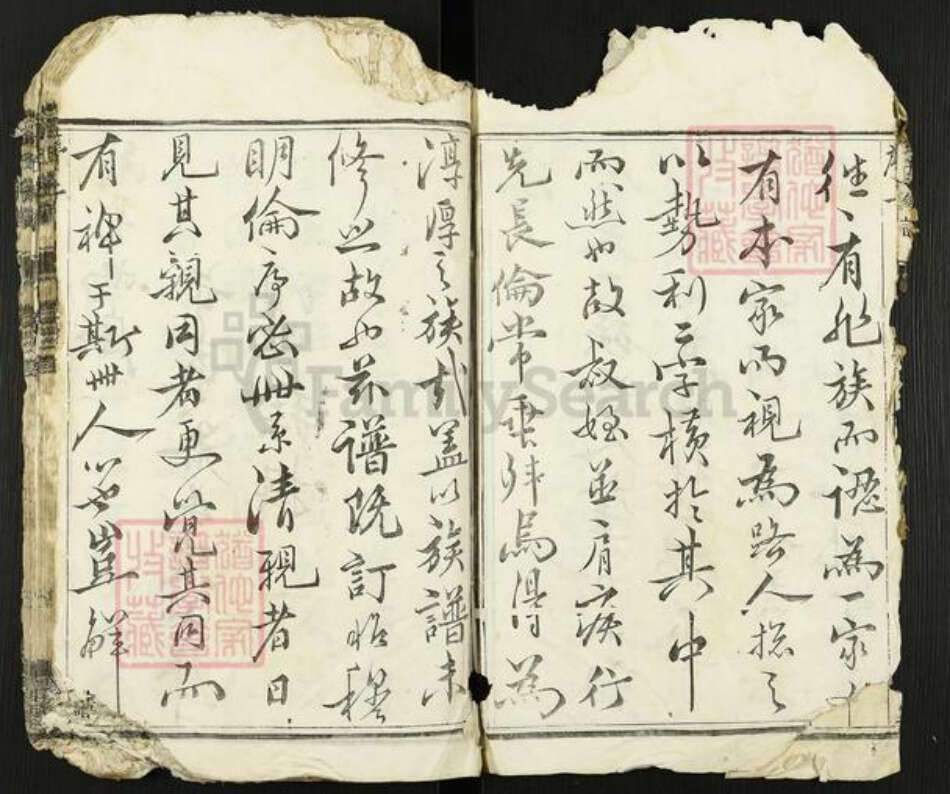 往往有他族而認為一家
有本家而視為路人總之
以勢利二字橫於其中
而然也故叔姪並肩疾行
先長倫常乖舛烏得為
淳厚之族哉蓋以族譜未
修之故也茲譜既訂昭穆
明倫序必世系清親者日
見其親同者更覺其同而
有裨于斯世人心也豈鮮
FamilySearch